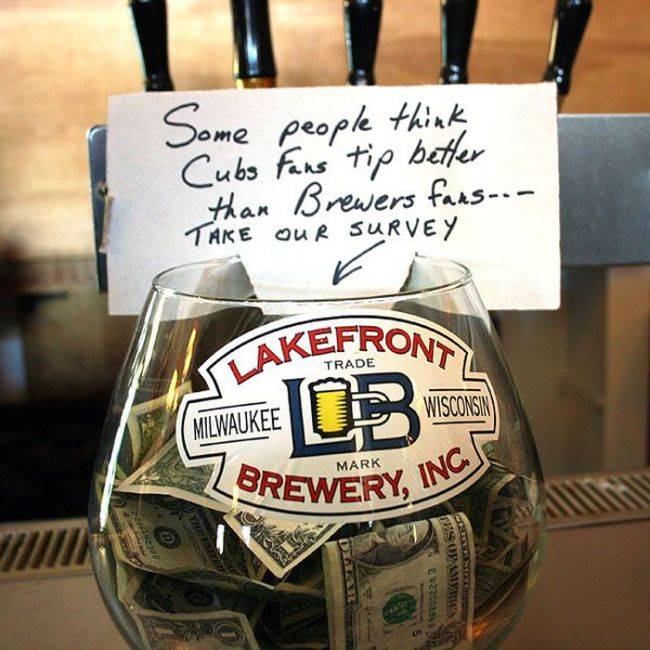 Some people think
Cubs Fans tip better
than Brewers fans---
TAKE OUR SURVEY
LAKEFRONT
TRADE
MILWAUKEE LB WISCONSIN
MARK
BREWERY, INC.